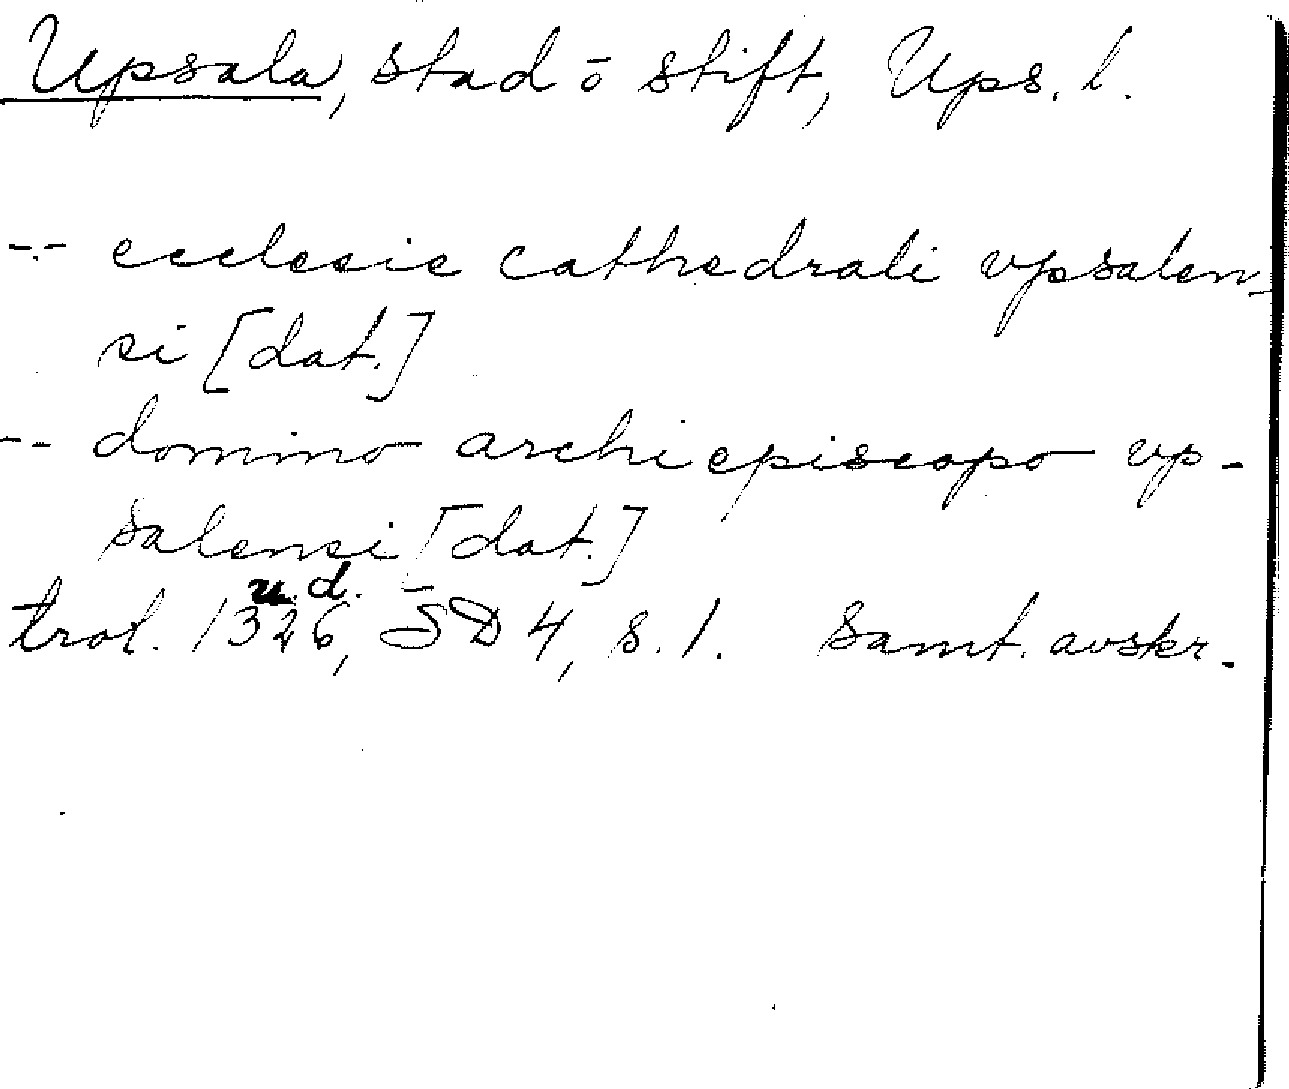 Upsala, stad o stift, Ups. l.
-- ecclesie cathedrali vpsalen-
si [dat.]
-- domino archiepiscopo vp-
salensi [dat.]
u.d.
trol. 1326, SD 4, s. 1. Samt. avskr.